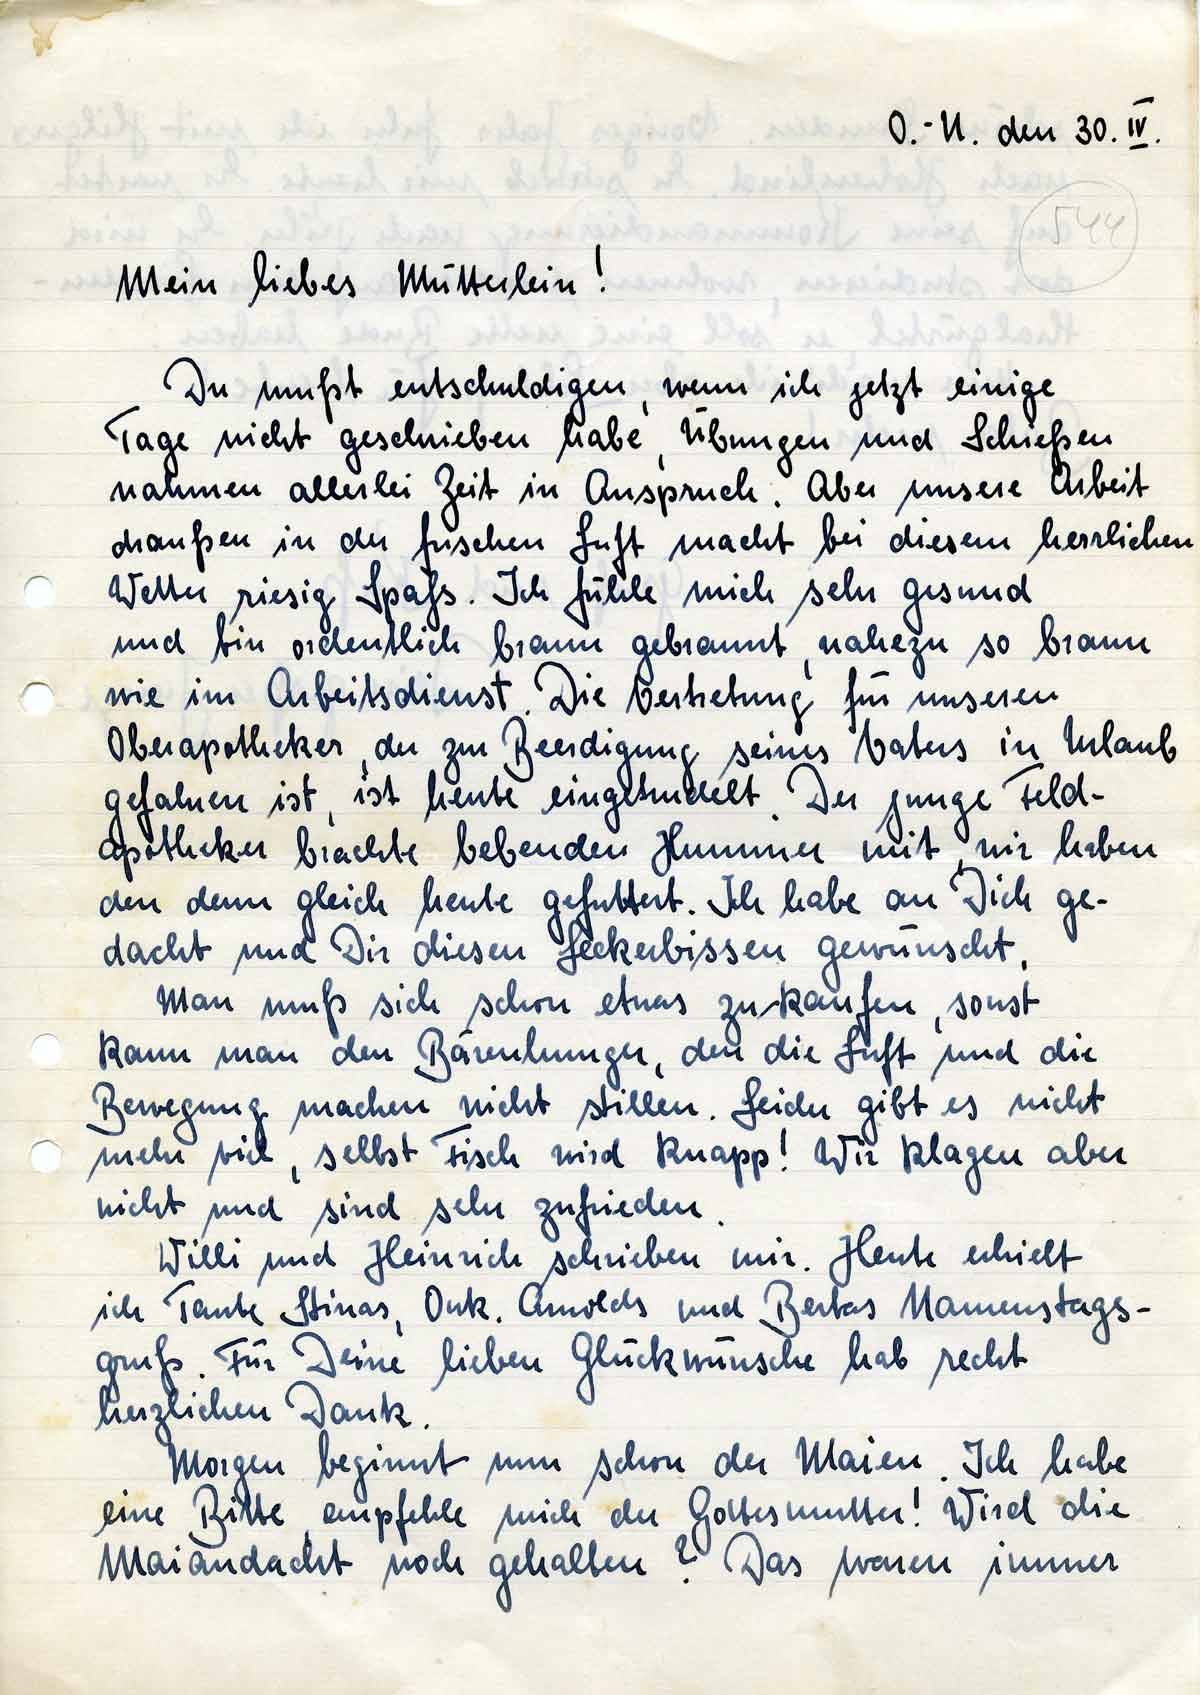 O.-U. den 30. IV.
544
Mein liebes Mütterlein!
Du mußt entschuldigen, wenn ich jetzt einige
Tage nicht geschrieben habe, Übungen und Schießen
nahmen allerlei Zeit in Anspruch. Aber unsere Arbeit
draußen in der frischen Luft macht bei diesem herrlichen
Wetter riesig Spaß. Ich fühle mich sehr gesund
und bin ordentlich braun gebrannt, nahezu so braun
wie im Arbeitsdienst. Die Vertretung für unseren
Oberapotheker, der zur Beerdigung seines Vaters in Urlaub
gefahren ist, ist heute eingetrudelt. Der junge Feld-
apotheker brachte lebenden Hummer mit, wir haben
den denn gleich heute gefuttert. Ich habe an Dich ge-
dacht und Dir diesen Leckerbissen gewünscht.
Man muß sich schon etwas zukaufen, sonst
kann man den Bärenhunger, den die Luft und die
Bewegung machen nicht stillen. Leider gibt es nicht
mehr viel, selbst Fisch wird knapp! Wir klagen aber
nicht und sind sehr zufrieden.
Willi und Heinrich schrieben mir. Heute erhielt
ich Tante Stinas, Onk. Arnolds und Bertas Namenstags-
gruß. Für Deine lieben Glückwünsche hab recht
herzlichen Dank.
Morgen beginnt nun schon der Maien. Ich habe
eine Bitte, empfehle mich der Gottesmutter! Wird die
Maiandacht noch gehalten? Das waren immer